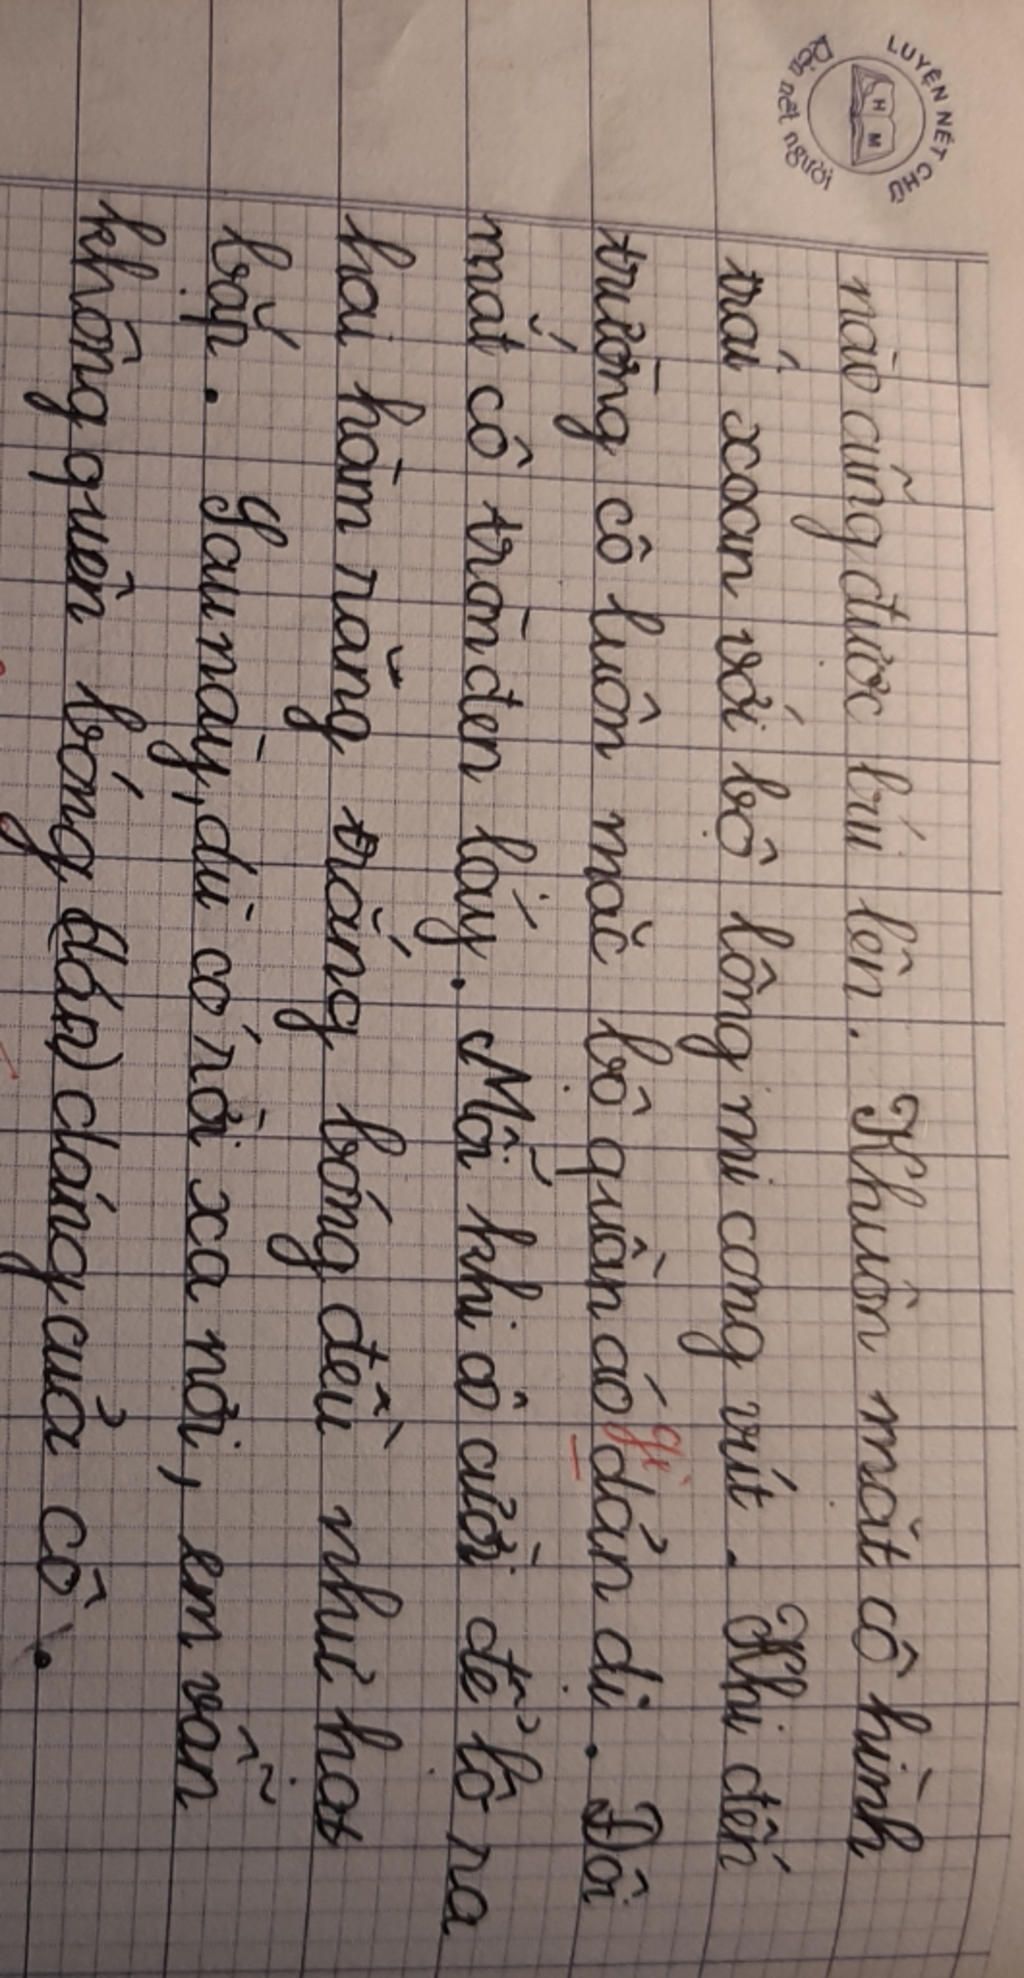 LUYỆN NÉT CHỮ
Rèn nết người
H M
nào cũng được búi lên. Khuôn mặt cô hình
trái xoan với bộ lông mi cong vút. Khi đến
trường cô luôn mặc bộ quần áo dản dị. Đôi
gi
mắt cô tròn đen láy. Mỗi khi cô cười để lộ ra
hai hàm răng trắng bóng đều như hạt
bắp. Sau này, dù có rời xa nơi, em vẫn
không quên bóng (dán) dáng của cô.